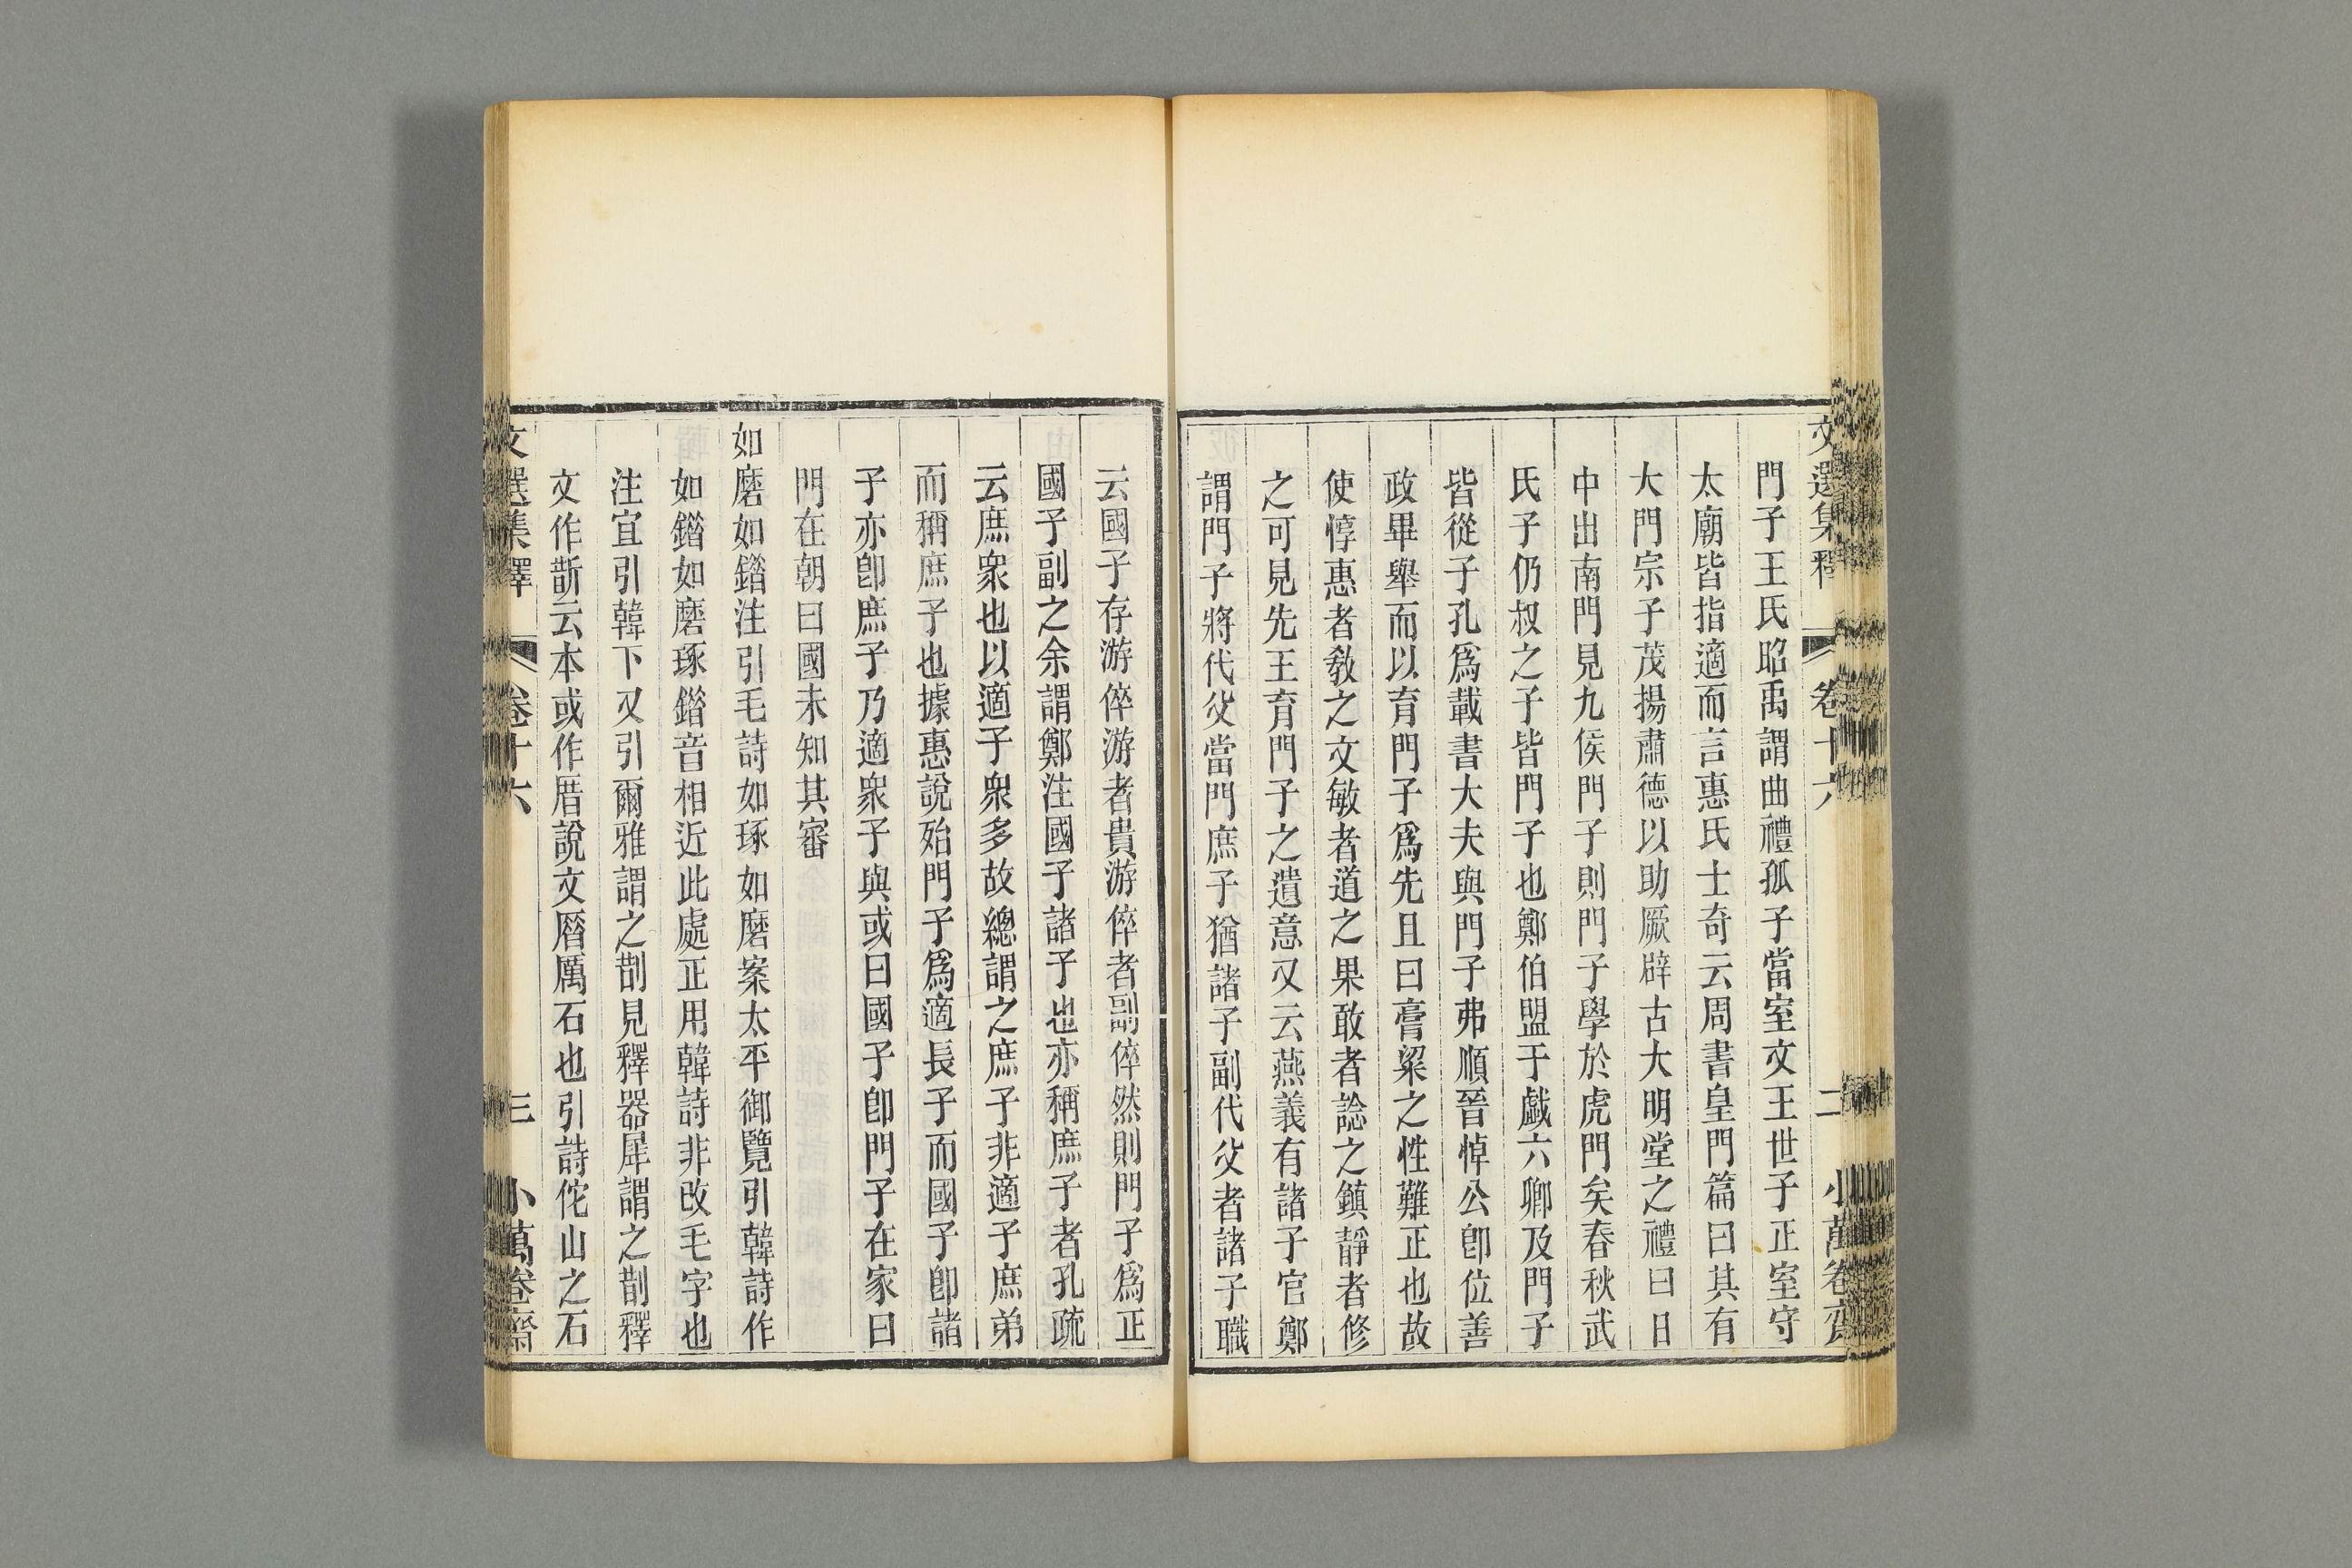 文選集釋 卷十六 二 小萬卷齋
門子王氏昭禹謂曲禮孤子當室文王世子正室守
太廟皆指適而言惠氏士奇云周書皇門篇曰其有
大門宗子茂揚肅德以助厥辟古大明堂之禮曰日
中出南門見九侯門子則門子學於虎門矣春秋武
氏子仍叔之子皆門子也鄭伯盟于戲六卿及門子
皆從子孔爲載書大夫與門子弗順晉悼公卽位善
政畢舉而以育門子爲先且曰膏粱之性難正也故
使惇惠者敎之文敏者道之果敢者諗之鎮靜者修
之可見先王育門子之遺意又云燕義有諸子官鄭
謂門子將代父當門庶子猶諸子副代父者諸子職
云國子存游倅游者貴游倅者副倅然則門子爲正
國子副之余謂鄭注國子諸子也亦稱庶子者孔疏
云庶衆也以適子衆多故總謂之庶子非適子庶弟
而稱庶子也據惠說殆門子爲適長子而國子卽諸
子亦卽庶子乃適衆子與或曰國子卽門子在家曰
門在朝曰國未知其審
如磨如鎈注引毛詩如琢如磨案太平御覽引韓詩作
如鎈如磨琢鎈音相近此處正用韓詩非改毛字也
注宜引韓下又引爾雅謂之剒見釋器犀謂之剒釋
文作斮云本或作厝說文厝厲石也引詩佗山之石
文選集釋 卷十六 三 小萬卷齋